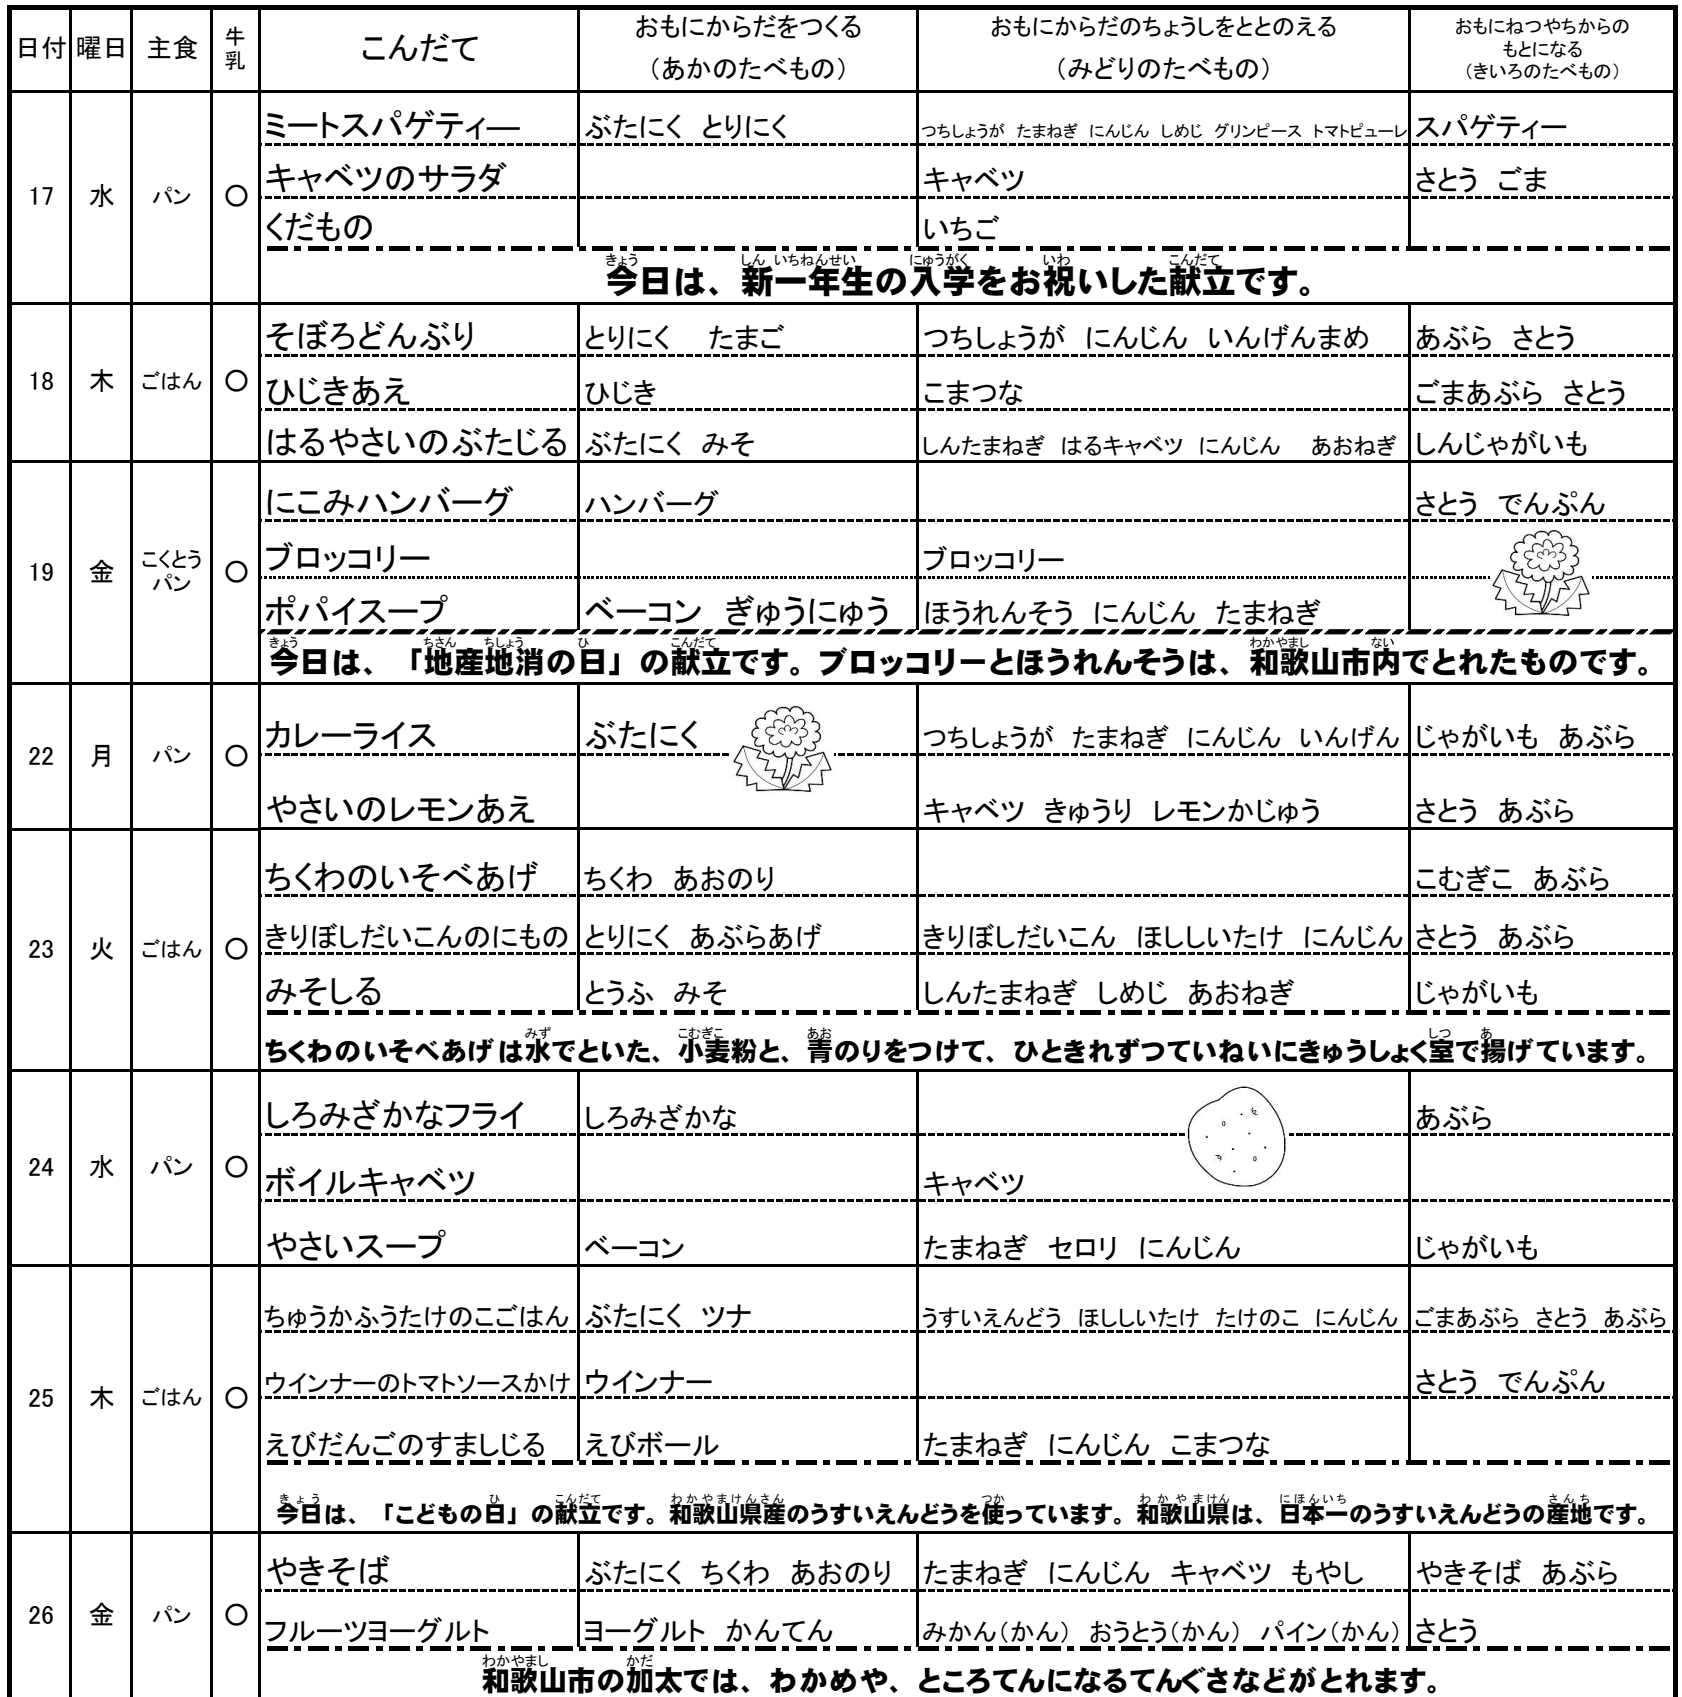 日付 曜日 主食 牛乳 こんだて おもにからだをつくる(あかのたべもの) おもにからだのちょうしをととのえる(みどりのたべもの) おもにねつやちからのもとになる(きいろのたべもの)
17 水 パン ○
ミートスパゲティー ぶたにく とりにく つちしょうが たまねぎ にんじん しめじ グリンピース トマトピューレ スパゲティー
キャベツのサラダ キャベツ さとう ごま
くだもの いちご
きょう しん いちねんせい にゅうがく いわ こんだて
今日は、新一年生の入学をお祝いした献立です。
18 木 ごはん ○
そぼろどんぶり とりにく たまご つちしょうが にんじん いんげんまめ あぶら さとう
ひじきあえ ひじき こまつな ごまあぶら さとう
はるやさいのぶたじる ぶたにく みそ しんたまねぎ はるキャベツ にんじん あおねぎ しんじゃがいも
19 金 こくとうパン ○
にこみハンバーグ ハンバーグ さとう でんぷん
ブロッコリー ブロッコリー
ポパイスープ ベーコン ぎゅうにゅう ほうれんそう にんじん たまねぎ
きょう ちさん ちしょう ひ こんだて わかやまし ない
今日は、「地産地消の日」の献立です。ブロッコリーとほうれんそうは、和歌山市内でとれたものです。
22 月 パン ○
カレーライス ぶたにく つちしょうが たまねぎ にんじん いんげん じゃがいも あぶら
やさいのレモンあえ キャベツ きゅうり レモンかじゅう さとう あぶら
23 火 ごはん ○
ちくわのいそべあげ ちくわ あおのり こむぎこ あぶら
きりぼしだいこんのにもの とりにく あぶらあげ きりぼしだいこん ほししいたけ にんじん さとう あぶら
みそしる とうふ みそ しんたまねぎ しめじ あおねぎ じゃがいも
みず こむぎこ あお しつ あ
ちくわのいそべあげは水でといた、小麦粉と、青のりをつけて、ひときれずつていねいにきゅうしょく室で揚げています。
24 水 パン ○
しろみざかなフライ しろみざかな あぶら
ボイルキャベツ キャベツ
やさいスープ ベーコン たまねぎ セロリ にんじん じゃがいも
25 木 ごはん ○
ちゅうかふうたけのこごはん ぶたにく ツナ うすいえんどう ほししいたけ たけのこ にんじん ごまあぶら さとう あぶら
ウインナーのトマトソースかけ ウインナー さとう でんぷん
えびだんごのすましじる えびボール たまねぎ にんじん こまつな
きょう ひ こんだて わかやまけんさん つか わかやまけん にほんいち さんち
今日は、「こどもの日」の献立です。和歌山県産のうすいえんどうを使っています。和歌山県は、日本一のうすいえんどうの産地です。
26 金 パン ○
やきそば ぶたにく ちくわ あおのり たまねぎ にんじん キャベツ もやし やきそば あぶら
フルーツヨーグルト ヨーグルト かんてん みかん(かん) おうとう(かん) パイン(かん) さとう
わかやまし かだ
和歌山市の加太では、わかめや、ところてんになるてんぐさなどがとれます。